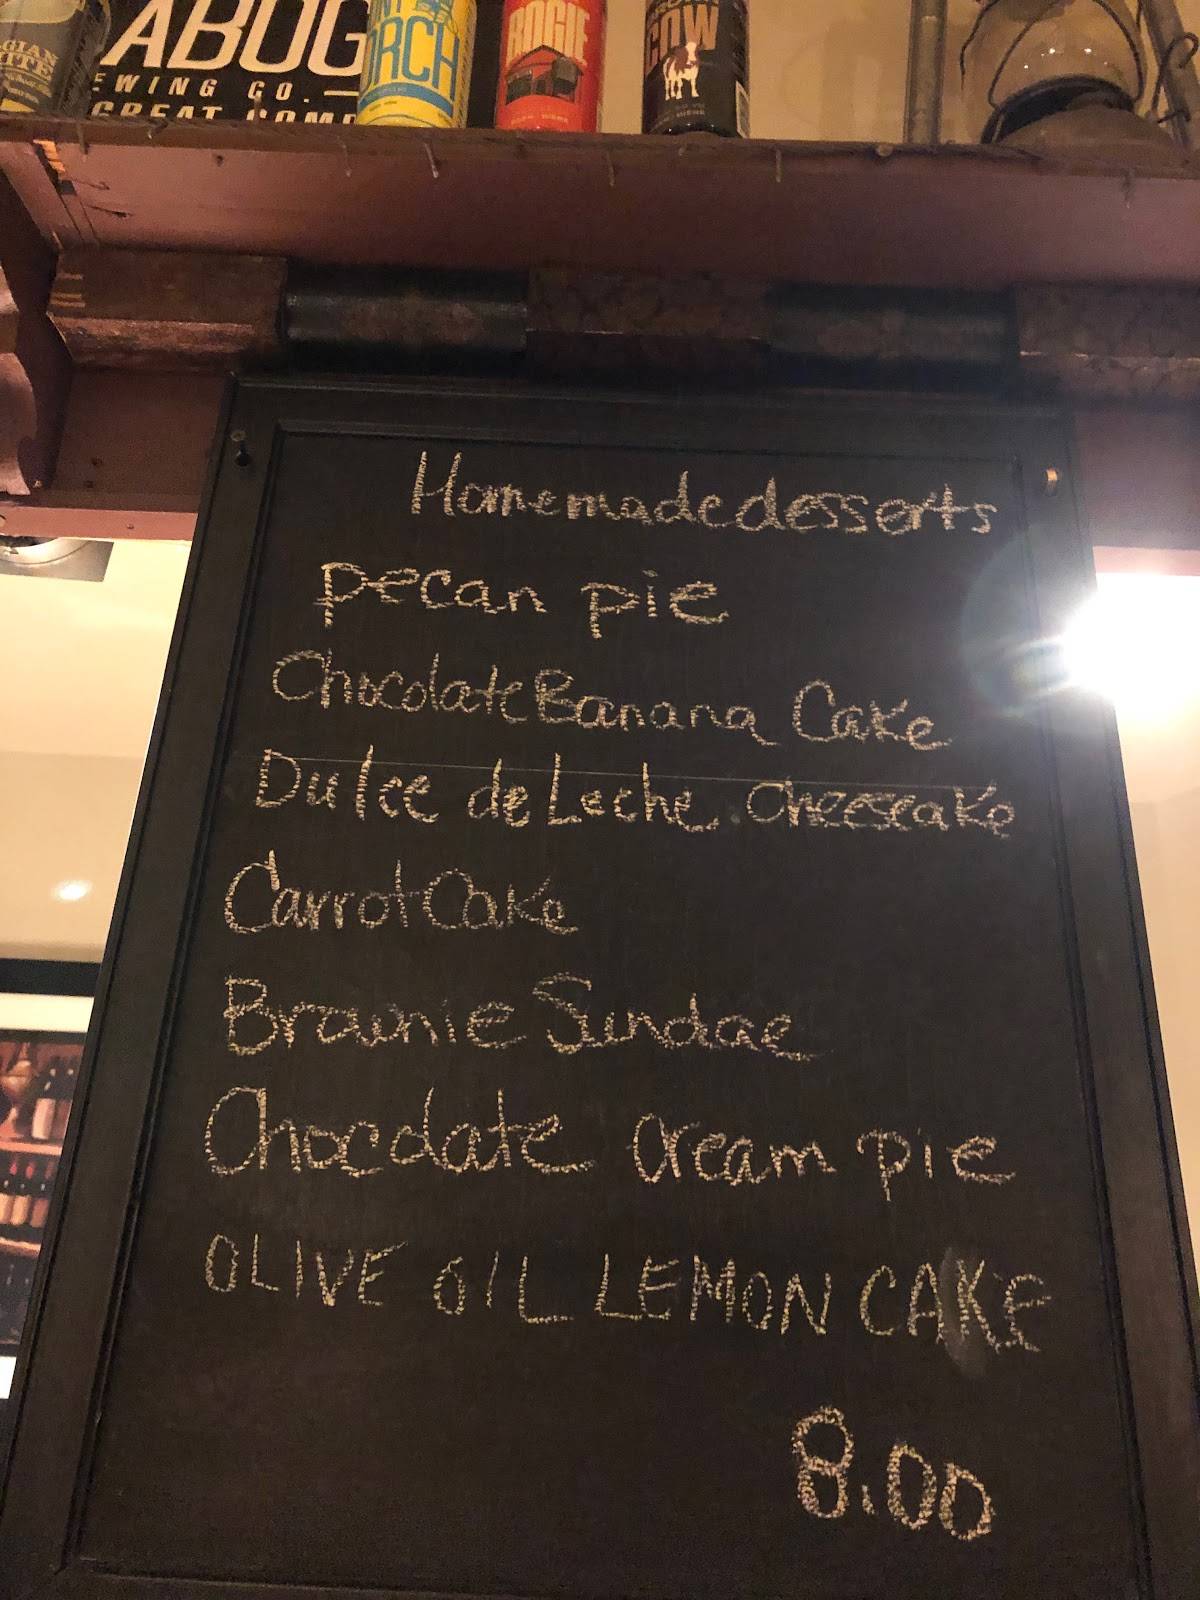 ABOG
EWING CO.
GREAT COMP
GIAN
ITE
ORCH
BOGIE
COW
Homemade desserts
pecan pie
Chocolate Banana Cake
Dulce de Leche Cheesecake
Carrot Cake
Brownie Sundae
Chocolate Cream pie
OLIVE OIL LEMON CAKE
8.00